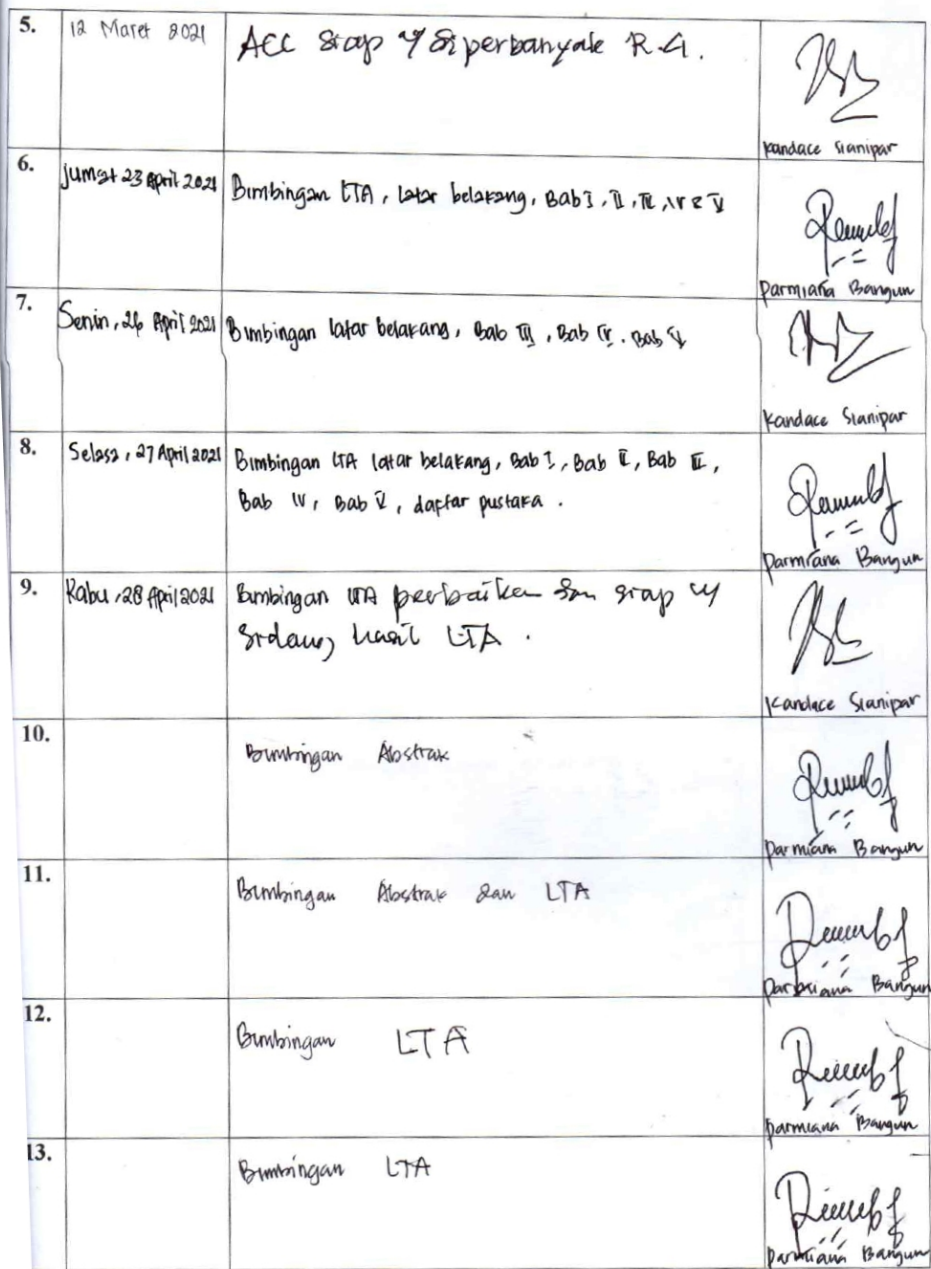 5. 12 Maret 2021 ACC siap diperbanyak
Kandace Sianipar
6. Jumat 23 April 2021 Bimbingan LTA, latar belakang, Bab I, II, III, IV & V
Parmiana Bangun
7. Senin, 26 April 2021 Bimbingan latar belakang, Bab III, Bab IV, Bab V
Kandace Sianipar
8. Selasa, 27 April 2021 Bimbingan LTA latar belakang, Bab I, Bab II, Bab III,
Bab IV, Bab V, daftar pustaka.
Parmiana Bangun
9. Rabu, 28 April 2021 Bimbingan LTA perbaikan dan siap
Sidang hasil LTA.
Kandace Sianipar
10. Bimbingan Abstrak
Parmiana Bangun
11. Bimbingan Abstrak dan LTA
Parmiana Bangun
12. Bimbingan LTA
Parmiana Bangun
13. Bimbingan LTA
Parmiana Bangun